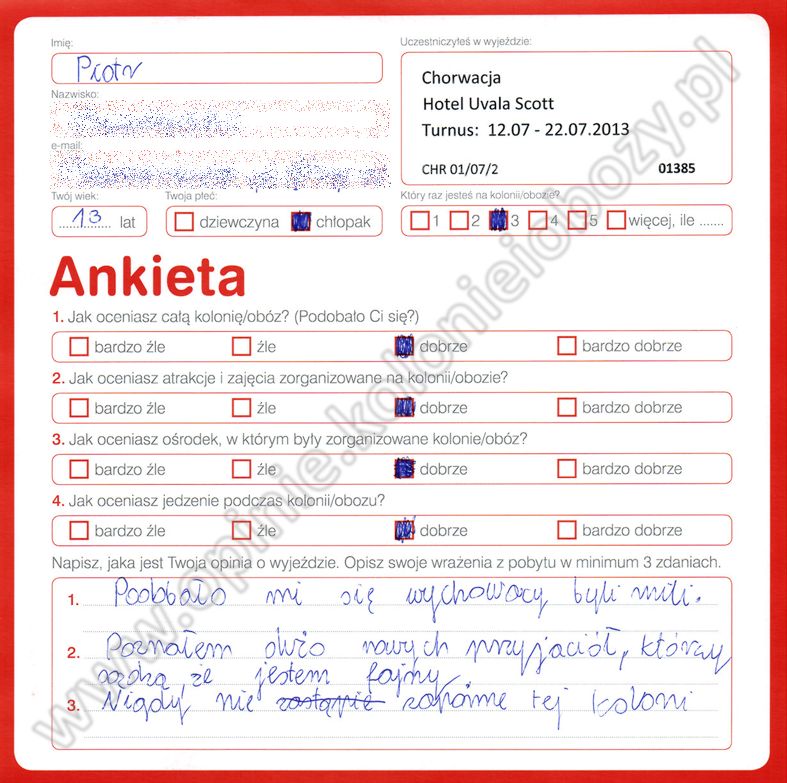 Imię:
Piotr
Uczestniczyłeś w wyjeździe:
Chorwacja
Hotel Uvala Scott
Turnus: 12.07 - 22.07.2013
CHR 01/07/2 01385
Nazwisko:
e-mail:
Twój wiek:
13 lat
Twoja płeć:
dziewczyna chłopak
Który raz jesteś na kolonii/obozie?
1 2 3 4 5 więcej, ile .......
Ankieta
1. Jak oceniasz całą kolonię/obóz? (Podobało Ci się?)
bardzo źle źle dobrze bardzo dobrze
2. Jak oceniasz atrakcje i zajęcia zorganizowane na kolonii/obozie?
bardzo źle źle dobrze bardzo dobrze
3. Jak oceniasz ośrodek, w którym były zorganizowane kolonie/obóz?
bardzo źle źle dobrze bardzo dobrze
4. Jak oceniasz jedzenie podczas kolonii/obozu?
bardzo źle źle dobrze bardzo dobrze
Napisz, jaka jest Twoja opinia o wyjeździe. Opisz swoje wrażenia z pobytu w minimum 3 zdaniach.
1. Poobbało mi się wychowacy byli mili.
2. Poznałem dużo nowych przyjaciół, którzy
sądzą, że jestem fajny.
3. Nigdy nie tej koloni
www.opinie.kolonieiobozy.pl